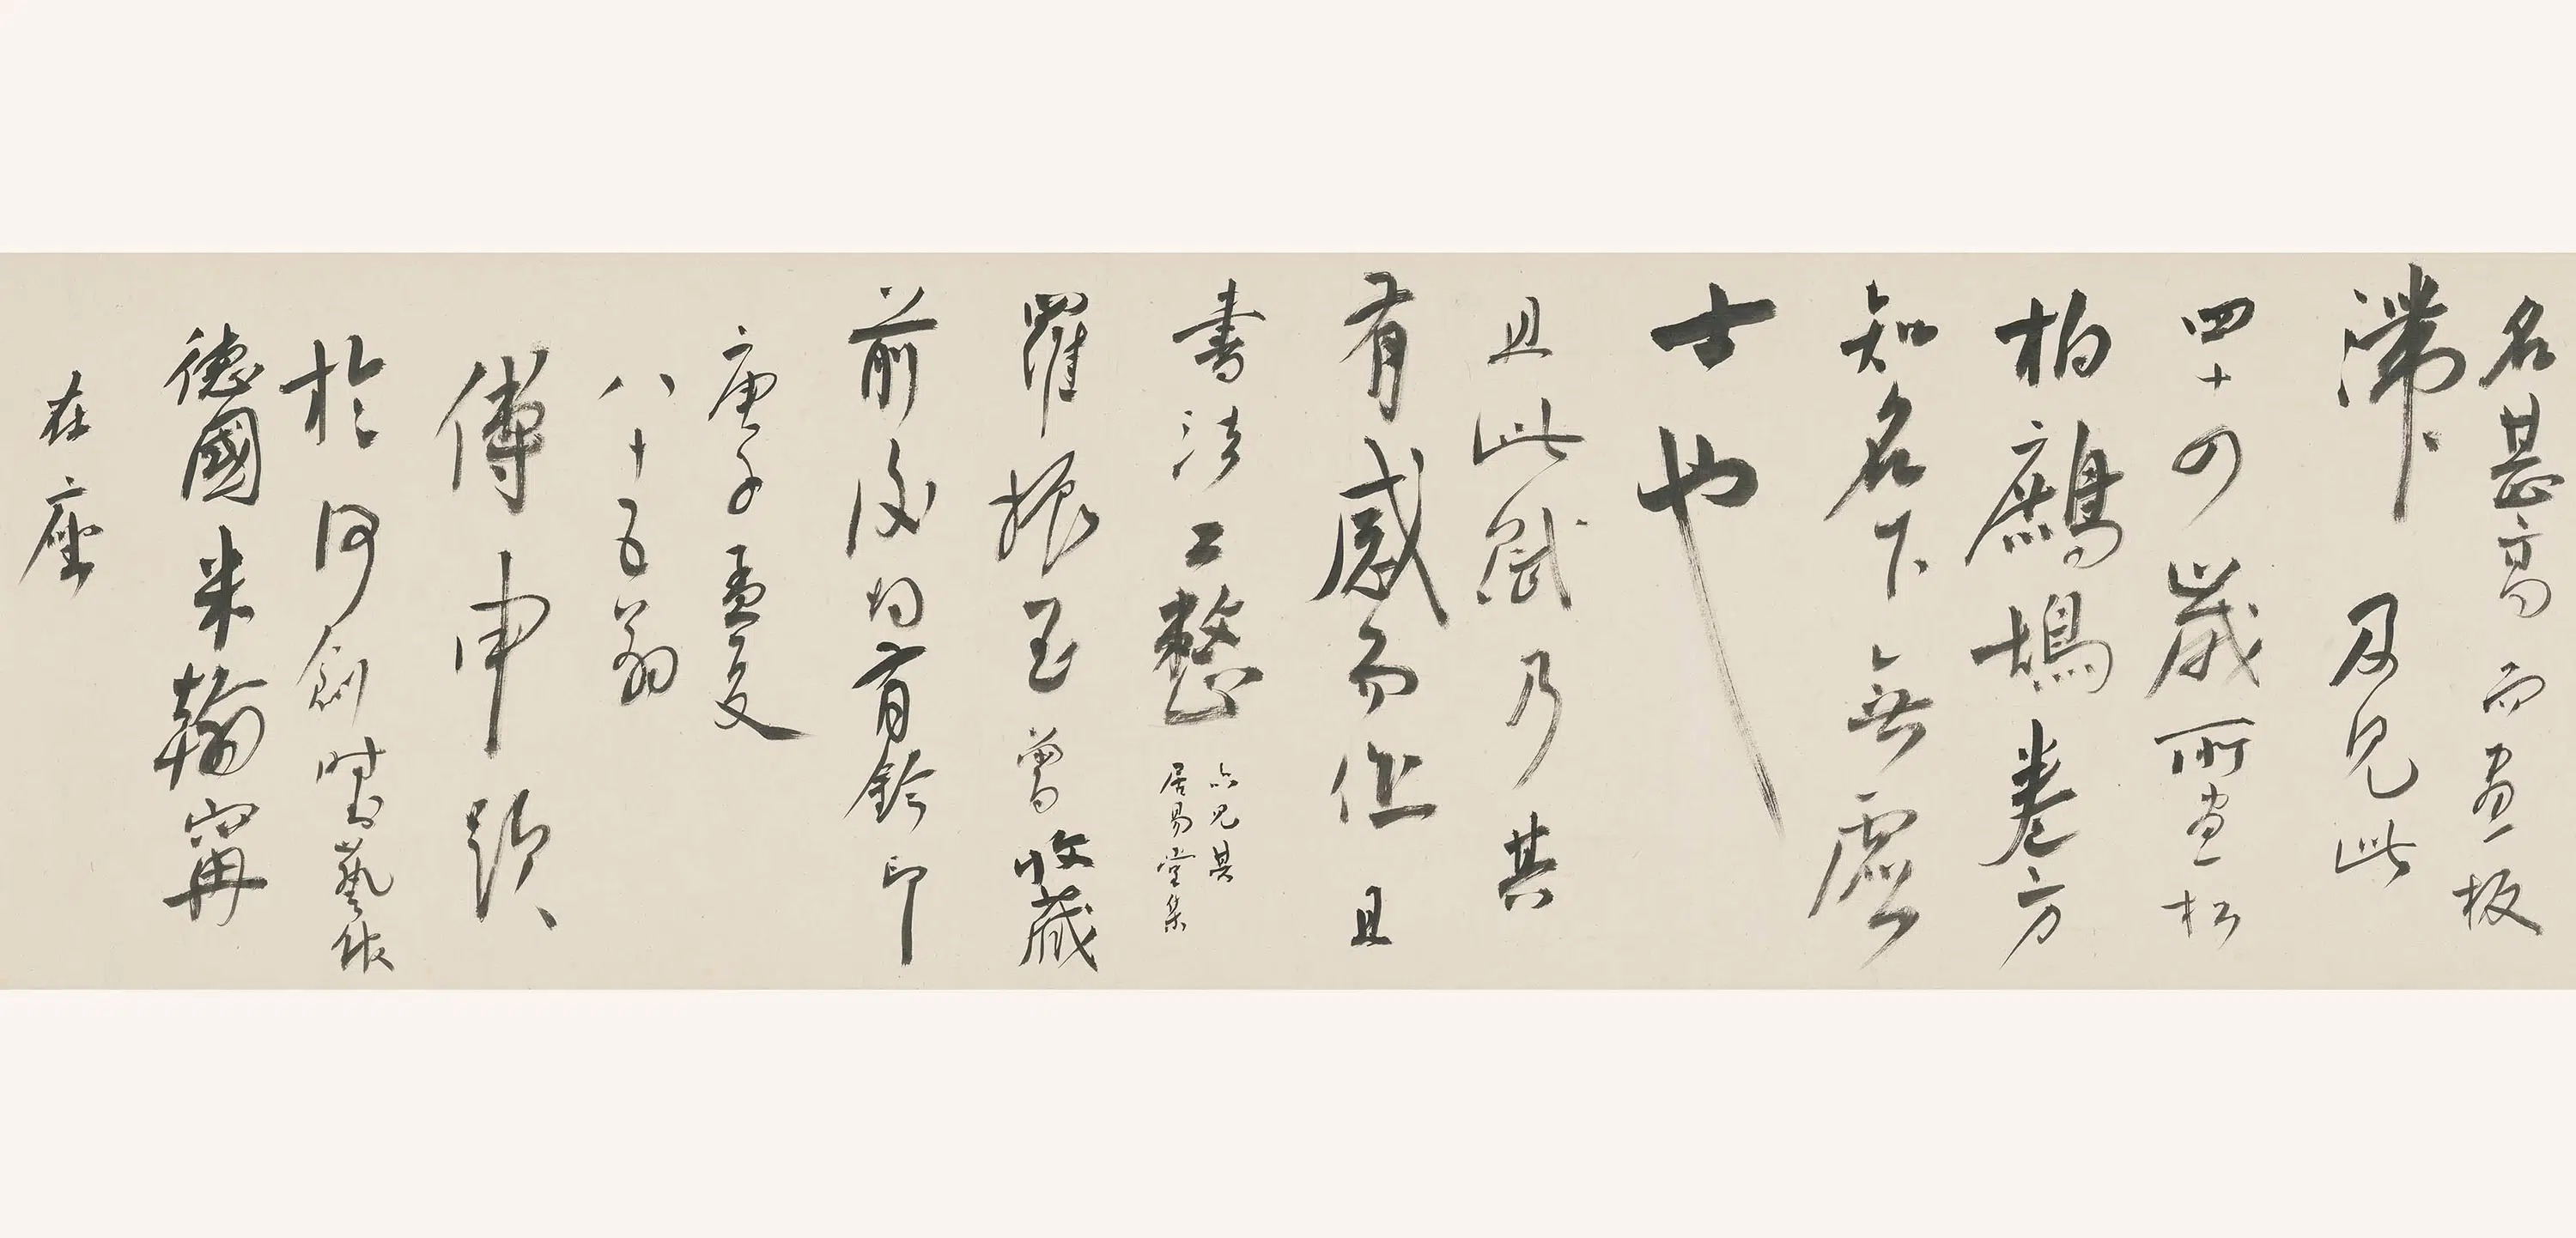 名甚高而畫板
滯及見此
四十四歲所畫松
柏鷓鴣卷方
知名下無虛
士也
且此賦乃其
有感而作且
書法工整
亦見其
居易堂集
羅振玉曾收藏
前後均有鈐印
庚子孟夏
八十五翁
傅申題
於何創時書藝
德國米翰甯
在座